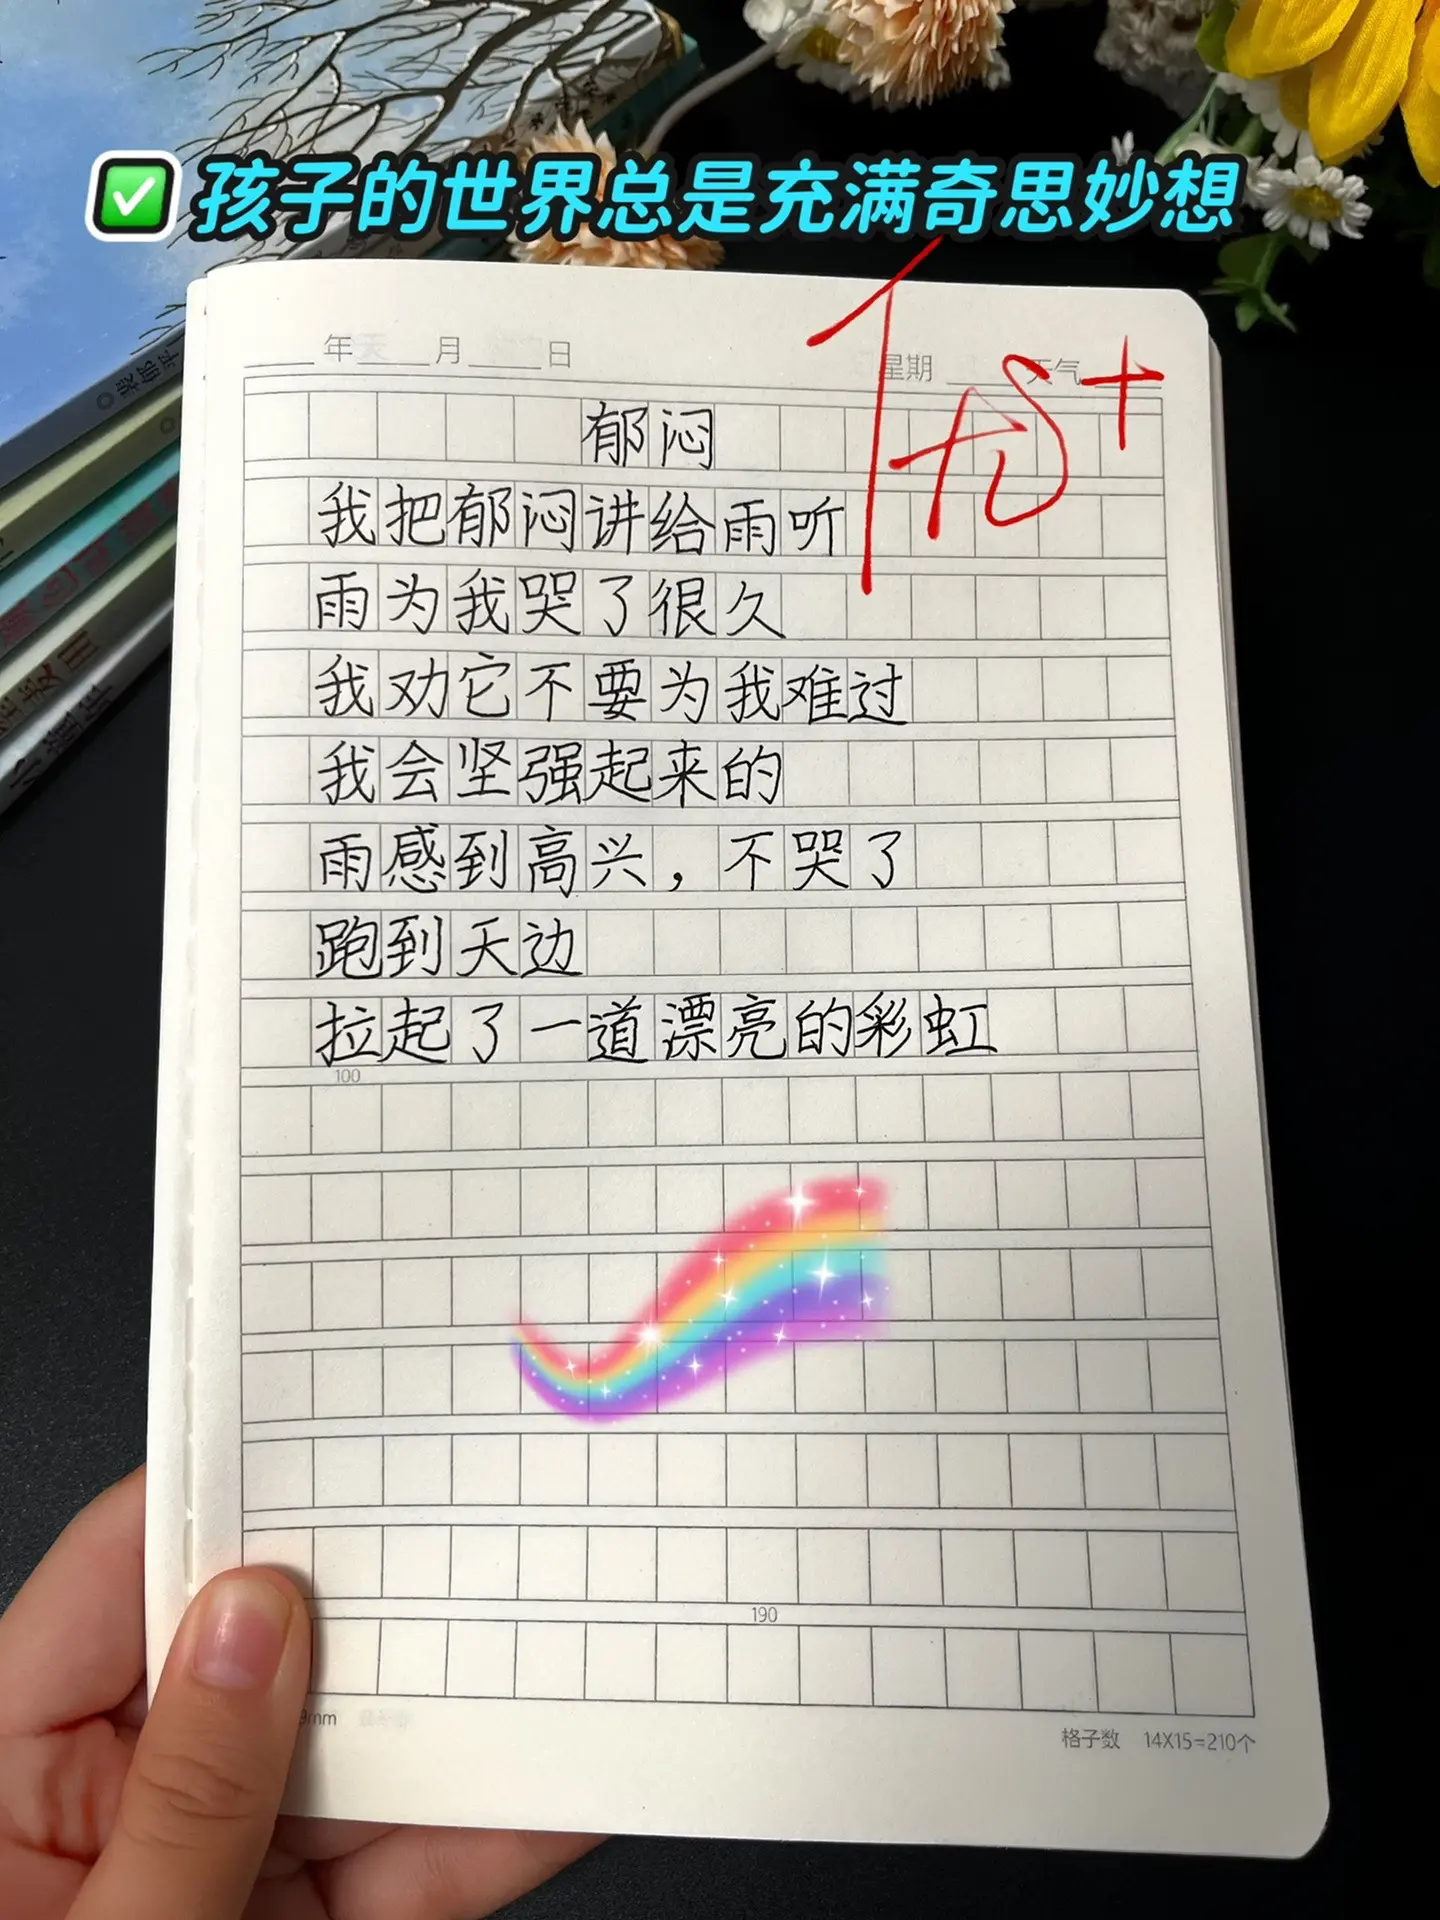 ✅孩子的世界总是充满奇思妙想
年 月 日 星期 天气
优+
郁闷
我把郁闷讲给雨听
雨为我哭了很久
我劝它不要为我难过
我会坚强起来的
雨感到高兴，不哭了
跑到天边
拉起了一道漂亮的彩虹
100
190
9mm
格子数 14X15=210个